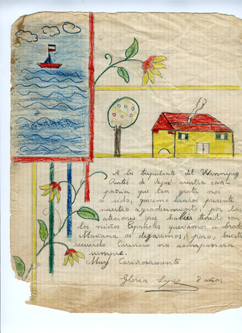 A los tripulantes del Winnipeg
Antes de dejar vuestra com-
pañia que tan grata nos
a sido, queremos haceros presente
nuestro agradecimiento, por las
atenciones que habeis tenido con
los niños Españoles queriamos a bordo
Mañana os dejaremos, pero, vuestro
cariñoso nos acompañara
siempre.
Muy Cariñosamente
Gloria 8 años